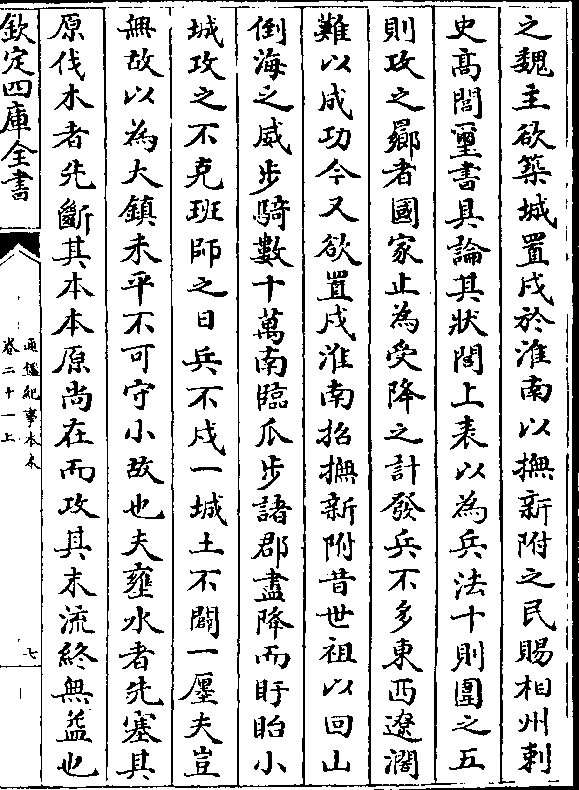 之魏主欲築城置戍於淮南以撫新附之民賜相州刺
史髙閭璽書具論其狀閭上表以為兵法十則圍之五
則攻之曏者國家止為受降之計發兵不多東西遼濶
難以成功今又欲置戍淮南招撫新附昔世祖以回山
倒海之威步騎數十萬南臨瓜步諸郡盡降而盱眙小
城攻之不克班師之日兵不戍一城土不闢一廛夫豈
無故以為大鎮未平不可守小故也夫壅水者先塞其
原伐木者先斷其本本原尚在而攻其末流終無益也
欽定四庫全書
通鑑紀事本末
卷二十一上
七